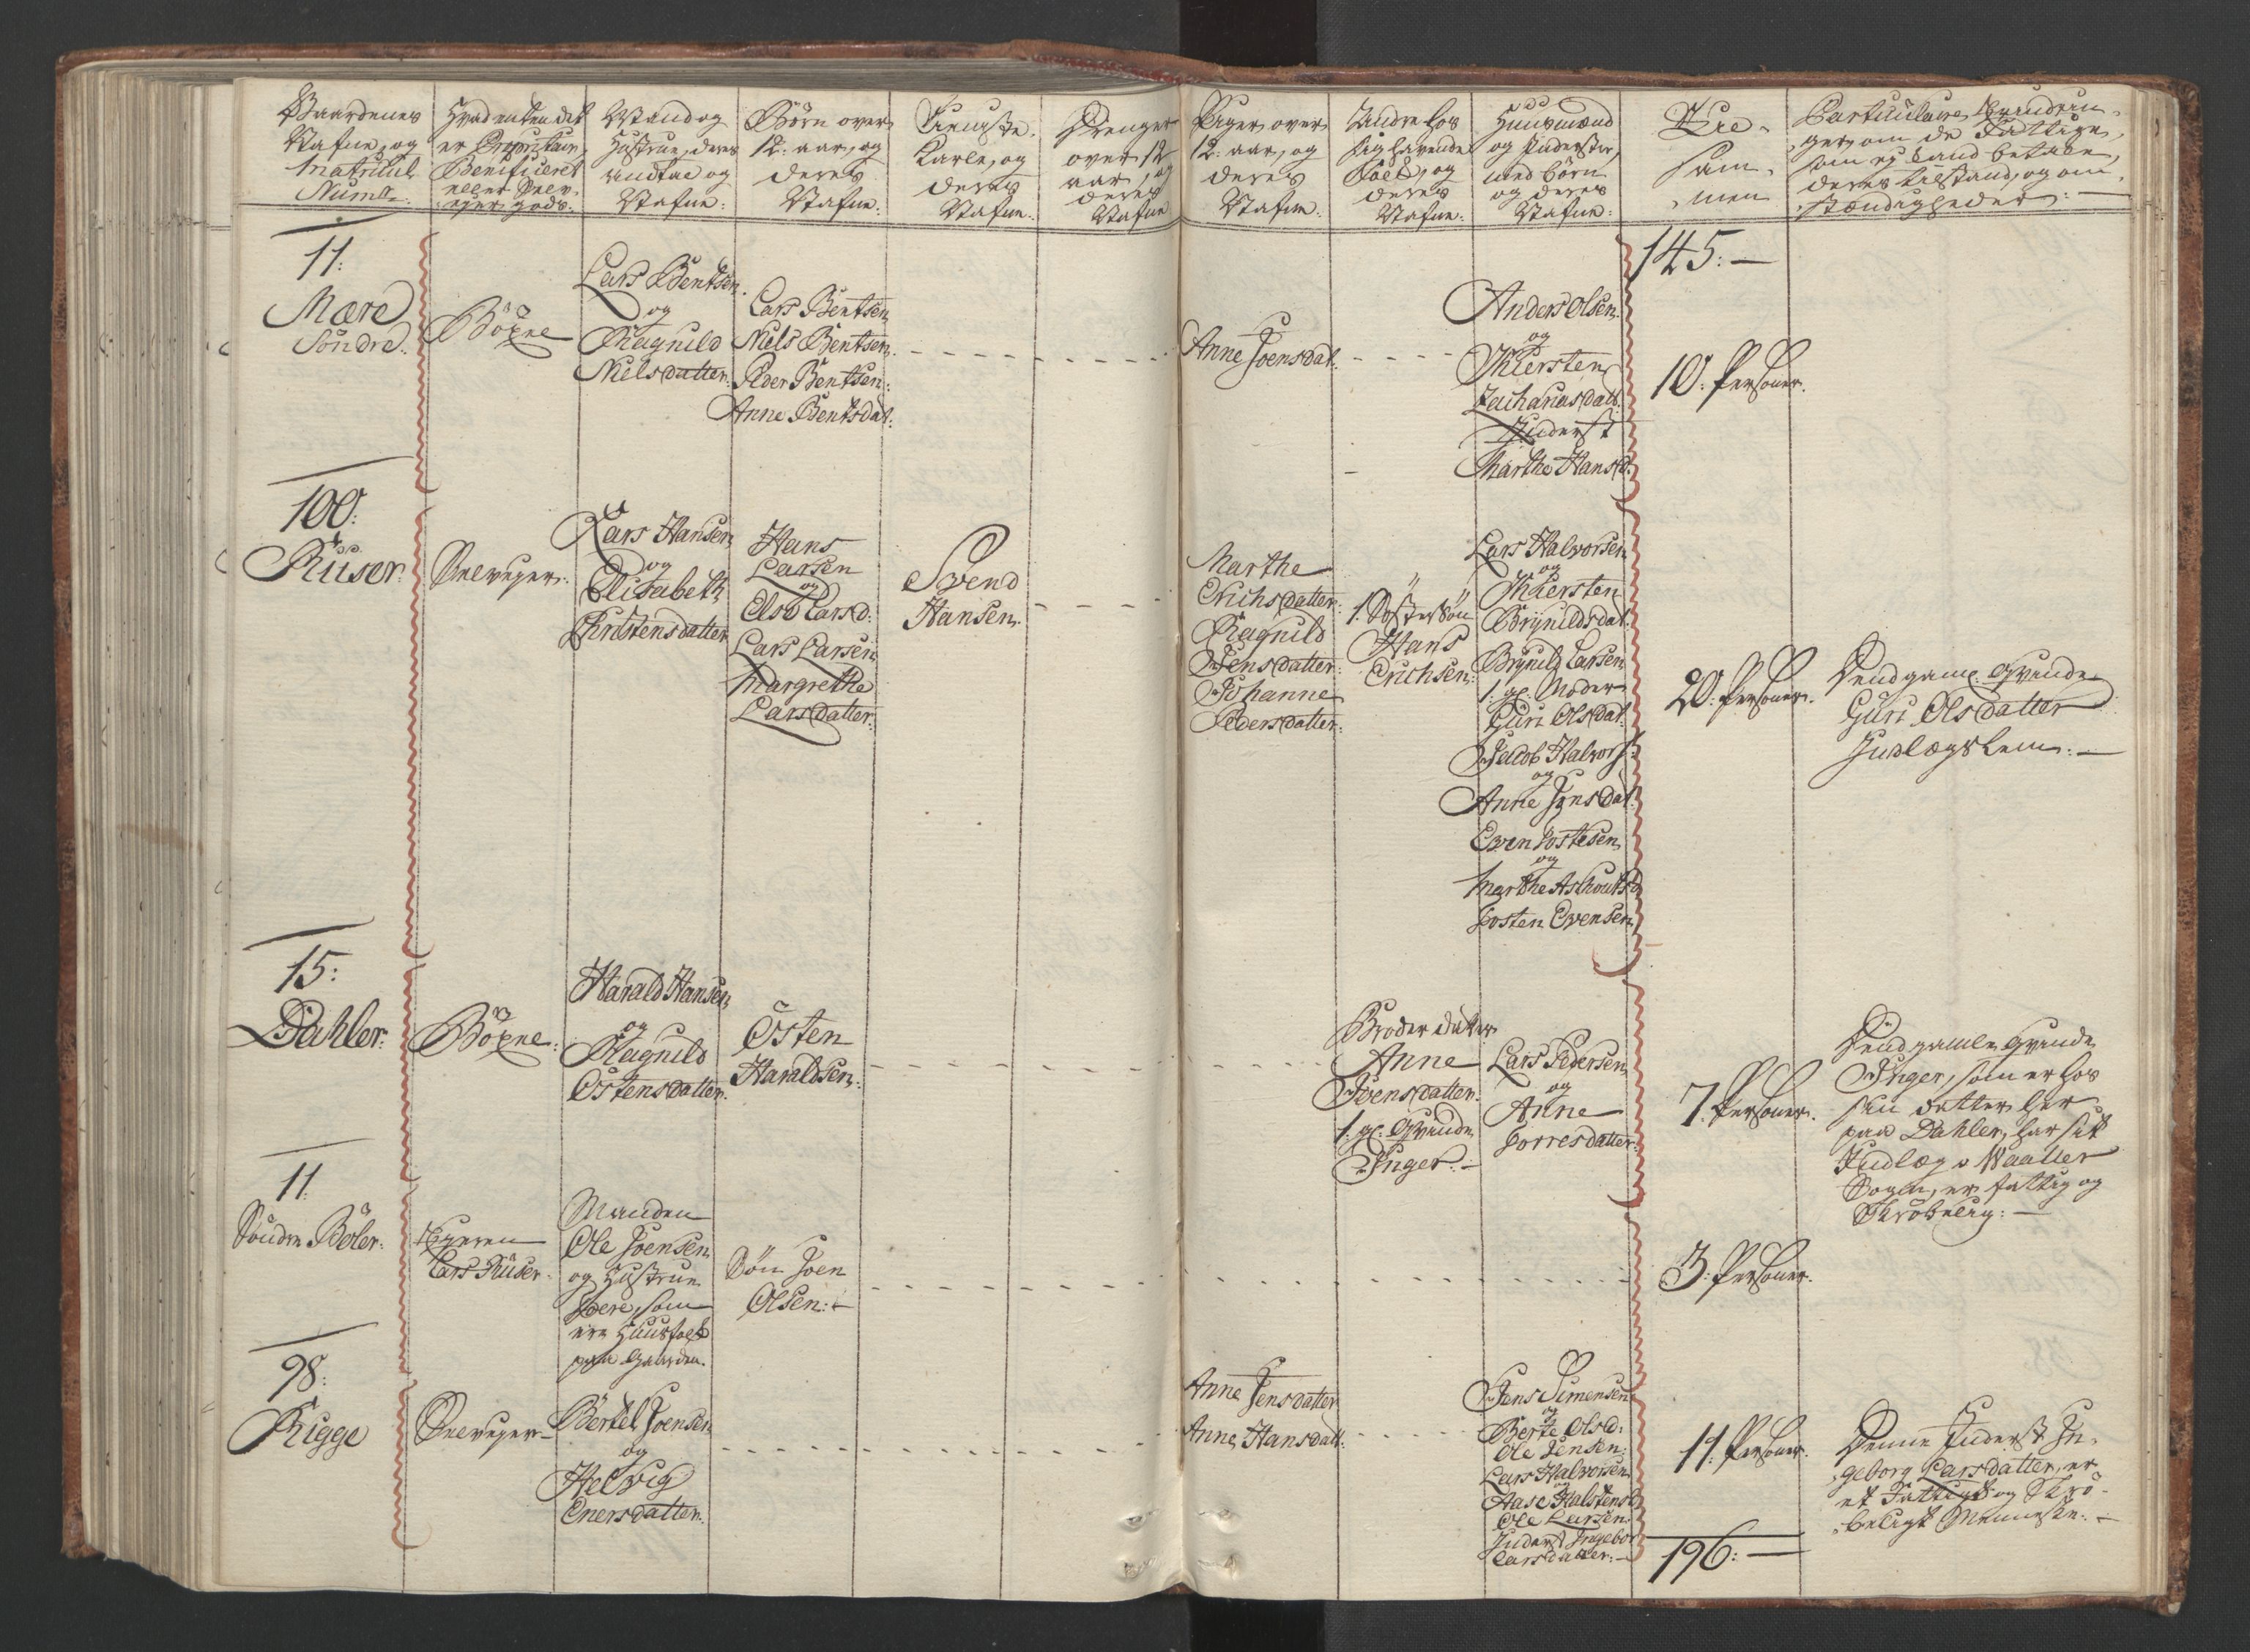 Gaardenes
Nafne, og
Matricul
Num:
Hvad enten det
er Proprietair,
Beneficeret
eller Selv-
eyer gods:
Mand og
Hustrue, deres
andtal og
Nafne:
Børn over
12: aar, og
deres
Nafne:
Tieneste-
Karle, og
deres
Nafne:
Drenge
over 12
aar, og
deres
Nafne
Piger over
12: aar, og
deres
Nafne:
Andre hos
sig havende
Folk, og
deres
Nafne:
Huusmænd
og Inderster,
med børn
og deres
Nafne:
Til-
sam-
men
Particulaire
om de Fattige,
som ej kand betale,
deres tilstand, og om-
stændigheder:
145:
11:
Mære
Söndre
Böxne
Lars Bentsen
og
Ragnild
Nielsdatter:
Lars Bentsen
Niels Bentsen
Peder Bentsen:
Anne Bentsdat:
Anne Joensdat:
Anders Olsen
og
Kiersten
Zachariasdatt:
Inderst
Marthe Hansd:
10: Personer.
100:
Rüser:
Selveyer:
Lars Hansen
og
Elisabeth
Christensdatter
Hans
Larsen
og
Else Larsd:
Lars Larsen
Margrethe
Larsdatter:
Svend
Hansen
Marthe
Erichsdatter:
Ragnild
Jensdatter:
Johanne
Pedersdatter:
1: Søstersøn
Hans
Erichsen:
Lars Halvorsen
og
Kiersten
Brynildsdat:
Brynild Larsen
1: gl: Moder
Guri Olsdat:
Jacob Halvors:
og
Anne Jensdat:
Even Jostesen
og
Marthe Ashouitsd
Josten Evensen
20: Personer.
Dend gaml: Qvinde
Guri Olsdatter
Indlægs Lem:
15:
Dahler:
Böxne:
Harald Hansen
og
Ragnild
Östensdatter:
Østen
Haraldsen:
Broder datter
Anne
Joensdatter:
1: gl: Qvinde
Inger:
Lars Pedersen
og
Anne
Torresdatter:
7: Personer.
Dend gamle Qvinde
Inger, som er hos
sin datter her
paa Dahler, har sit
Indlæg i Waaller
Sogn, er fattig og
Skrøbelig:
11:
Søndre Bøler:
Ejeren
Lars Rüser
Manden
Ole Joensen
og Hustrue
Pere, som
ere Huusfolk
paa Gaarden.
Søn Joen
Olsen:
3: Personer.
98:
Rigge
Selveyer
Bertel Joensen
og
Helvig
Enersdatter:
Anne Jensdatter
Anne Hansdatt:
Jens Simensen
og
Berte Olsd:
Ole Jensen:
Lars Halvorsen
og
Aase Halstensd
Ole Larsen:
Inderst Ingebor
Larsdatter:
11: Personer.
Denne Inderst In-
geborg Larsdatter, er
et Fattigt og Skrø-
beligt Menneske:
196: